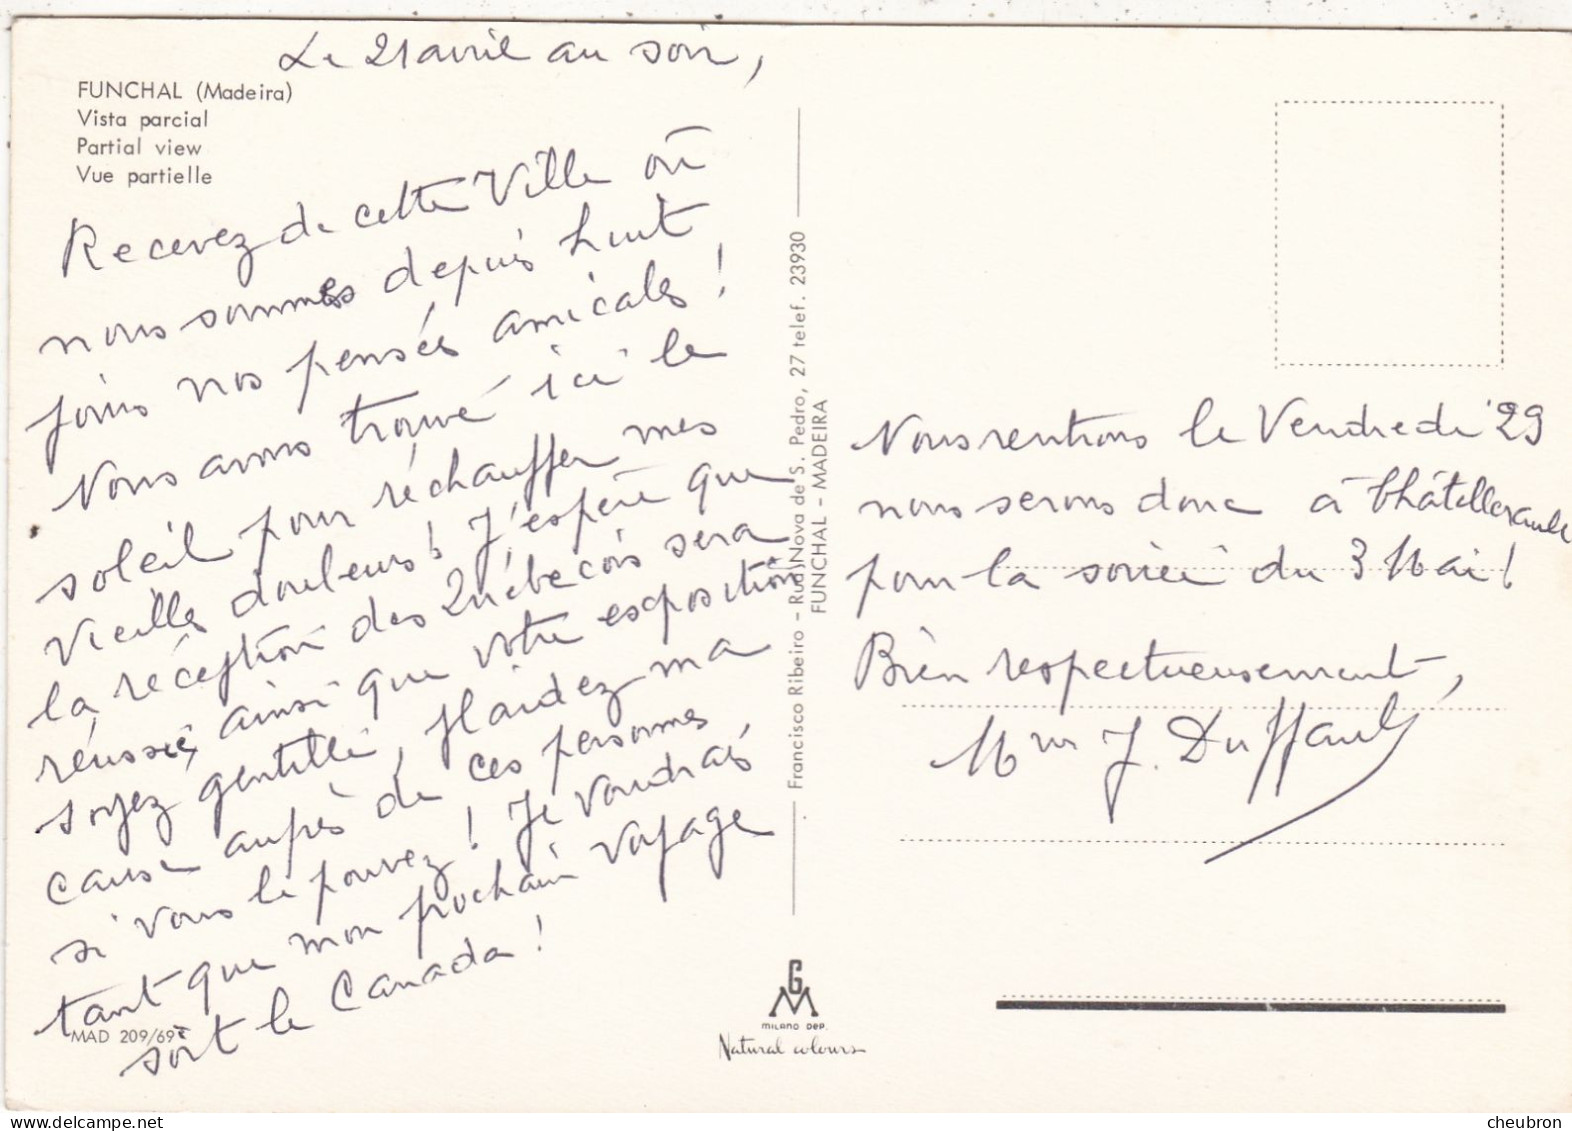 Le 21 avril au soir,
FUNCHAL (Madeira)
Vista parcial
Partial view
Vue partielle
Recevez de cette Ville où
nous sommes depuis huit
jours nos pensées amicales !
Nous avons trouvé ici le
soleil pour réchauffer mes
vieilles douleurs ! J'espère que
la réception des Québecois sera
réussie, ainsi que votre exposition
soyez gentille, plaidez ma
cause auprès de ces personnes,
si vous le pouvez ! Je voudrais
tant que mon prochain voyage
soit le Canada !
MAD 209/69
Francisco Ribeiro - Rua Nova de S. Pedro, 27 telef. 23930
FUNCHAL - MADEIRA
GM
MILANO DEP.
Natural colours
Nous rentrons le Vendredi 29
nous serons donc à Châtellerault
pour la soirée du 3 Mai !
Bien respectueusement,
Mme J. Duffault
cheubron